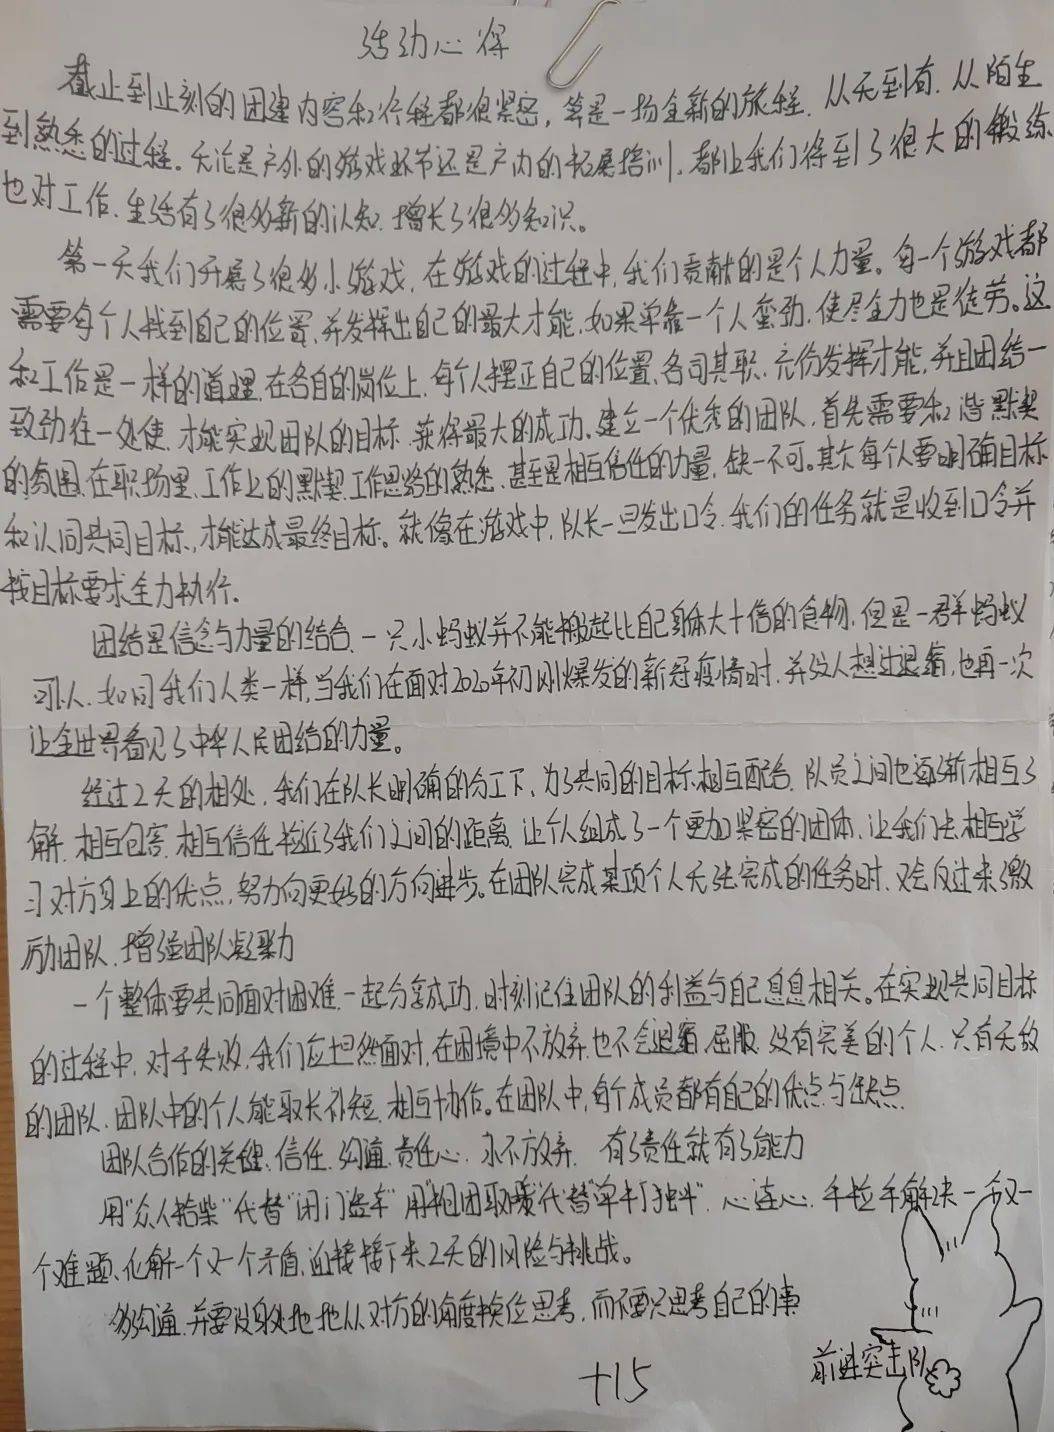 活动心得
截止到止刻的团建内容和行程都很紧密，算是一场全新的旅程．从无到有．从陌生
到熟悉的过程。无论是户外的游戏环节还是户内的拓展培训，都让我们得到了很大的锻练
也对工作、生活有了很多新的认知．增长了很多知识。
第一天我们开展了很多小游戏，在游戏的过程中，我们贡献的是个人力量。每一个游戏都
需要每个人找到自己的位置，并发挥出自己的最大才能，如果单靠一个人蛮劲，使尽全力也是徒劳。这
和工作是一样的道理．在各自的岗位上，每个人摆正自己的位置、各司其职、充份发挥才能，并且团结一
致劲往一处使．才能实现团队的目标．获得最大的成功。建立一个优秀的团队，首先需要和谐默契
的氛围．在职场里、工作上的默契．工作思路的熟悉．甚至是相互信任的力量，缺一不可。其次每个人要明确目标
和认同共同目标，才能达成最终目标。就像在游戏中，队长一旦发出口令．我们的任务就是收到口令并
按目标要求全力执行．
团结是信念与力量的结合．一只小蚂蚁并不能搬起比自己身体大十倍的食物．但是一群蚂蚁
可以．如同我们人类一样，当我们在面对2020年初刚爆发的新冠疫情时．并没人想过退缩，也再一次
让全世界看见了中华人民团结的力量。
经过2天的相处，我们在队长明确的分工下、为了共同的目标，相互配合．队员之间也逐渐相互了
解．相互包容．相互信任．拉近了我们之间的距离．让个人组成了一个更加紧密的团体．让我们去相互学
习对方身上的优点，努力向更好的方向进步。在团队完成某项个人无法完成的任务时．又会反过来激
励团队．增强团队凝聚力
一个整体要共同面对困难．一起分享成功．时刻记住团队的利益与自己息息相关。在实现共同目标
的过程中，对于失败，我们应坦然面对，在困境中不放弃．也不会退缩．屈服．没有完美的个人．只有无敌
的团队．团队中的个人能取长补短．相互协作。在团队中，每个成员都有自己的优点与缺点．
团队合作的关键、信任．沟通．责任心．永不放弃．有了责任就有了能力
用“众人拾柴”代替“闭门造车”用“抱团取暖”代替“单打独斗”．心连心．手拉手解决一个又一
个难题、化解一个又一个矛盾．迎接接下来2天的风险与挑战。
多沟通．并要设身处地地从对方的角度换位思考，而不要只思考自己的事
前进突击队
+15